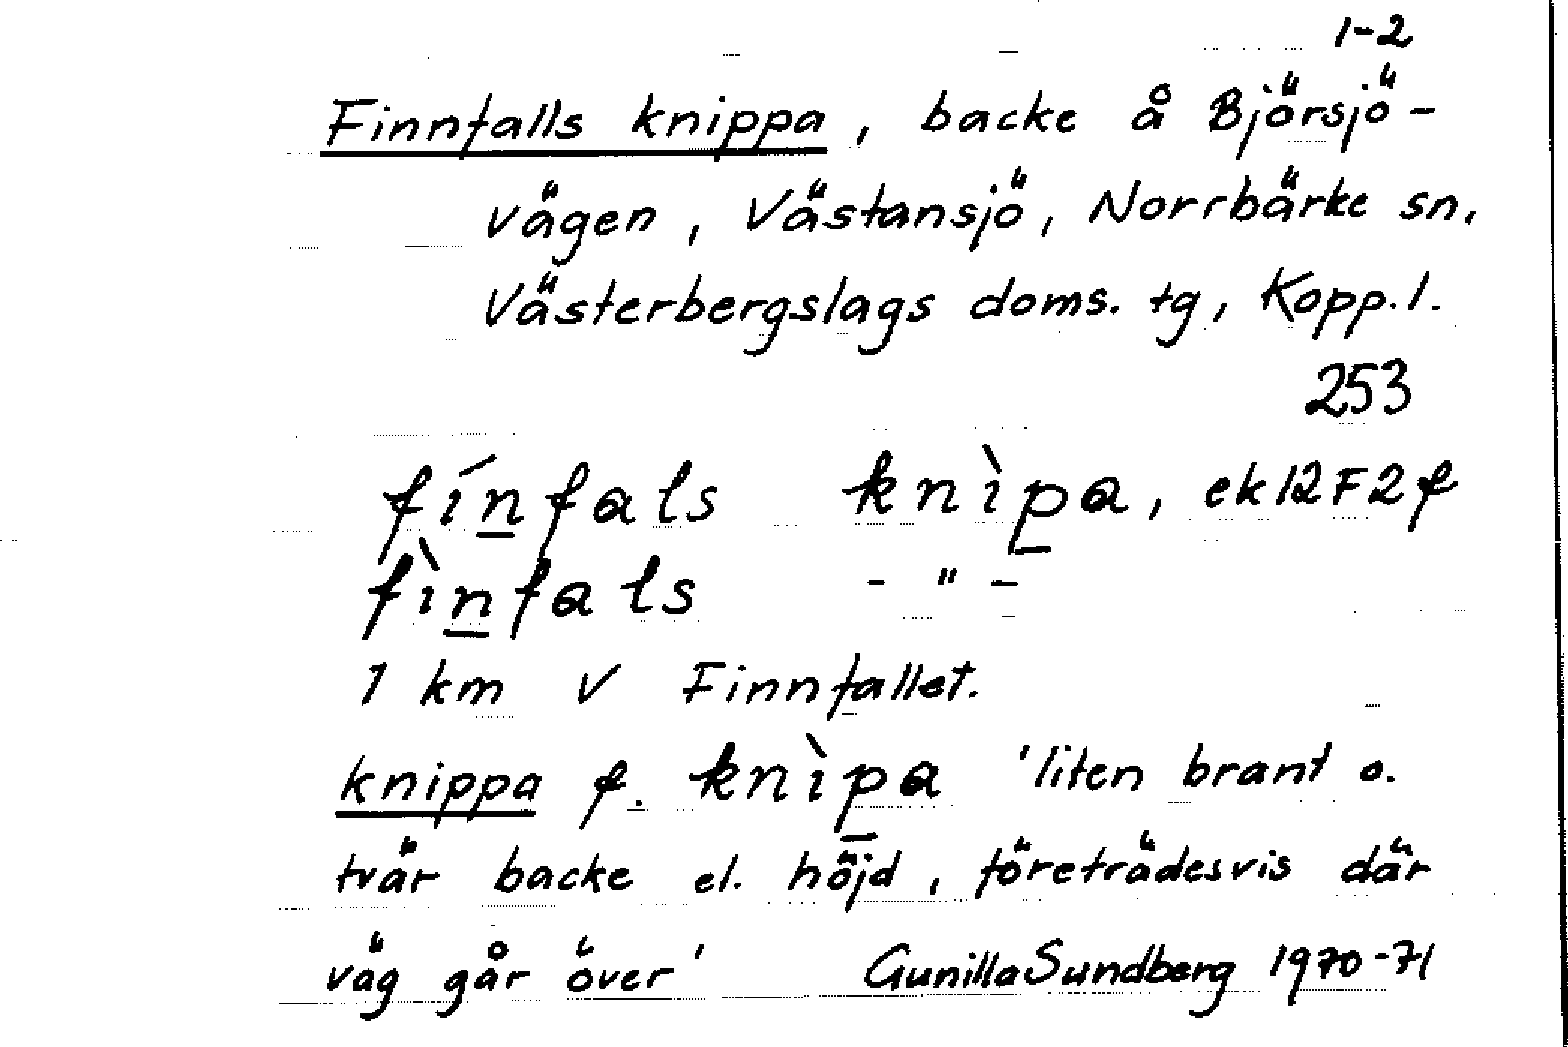 1-2
Finnfalls knippa, backe å Björsjö-
vägen, Västansjö, Norrbärke sn,
Västerbergslags doms. tg, Kopp. l.
253
fínfals knìpa, ek 12F2f
fìnfals - " -
1 km V Finnfallet.
knippa f. knìpa 'liten brant o.
tvär backe el. höjd, företrädesvis där
väg går över' Gunilla Sundberg 1970-71